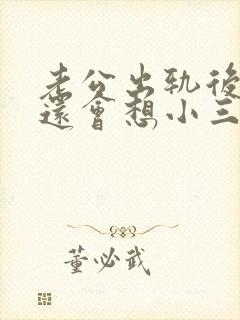 老公出轨後
還會想小三
董必武